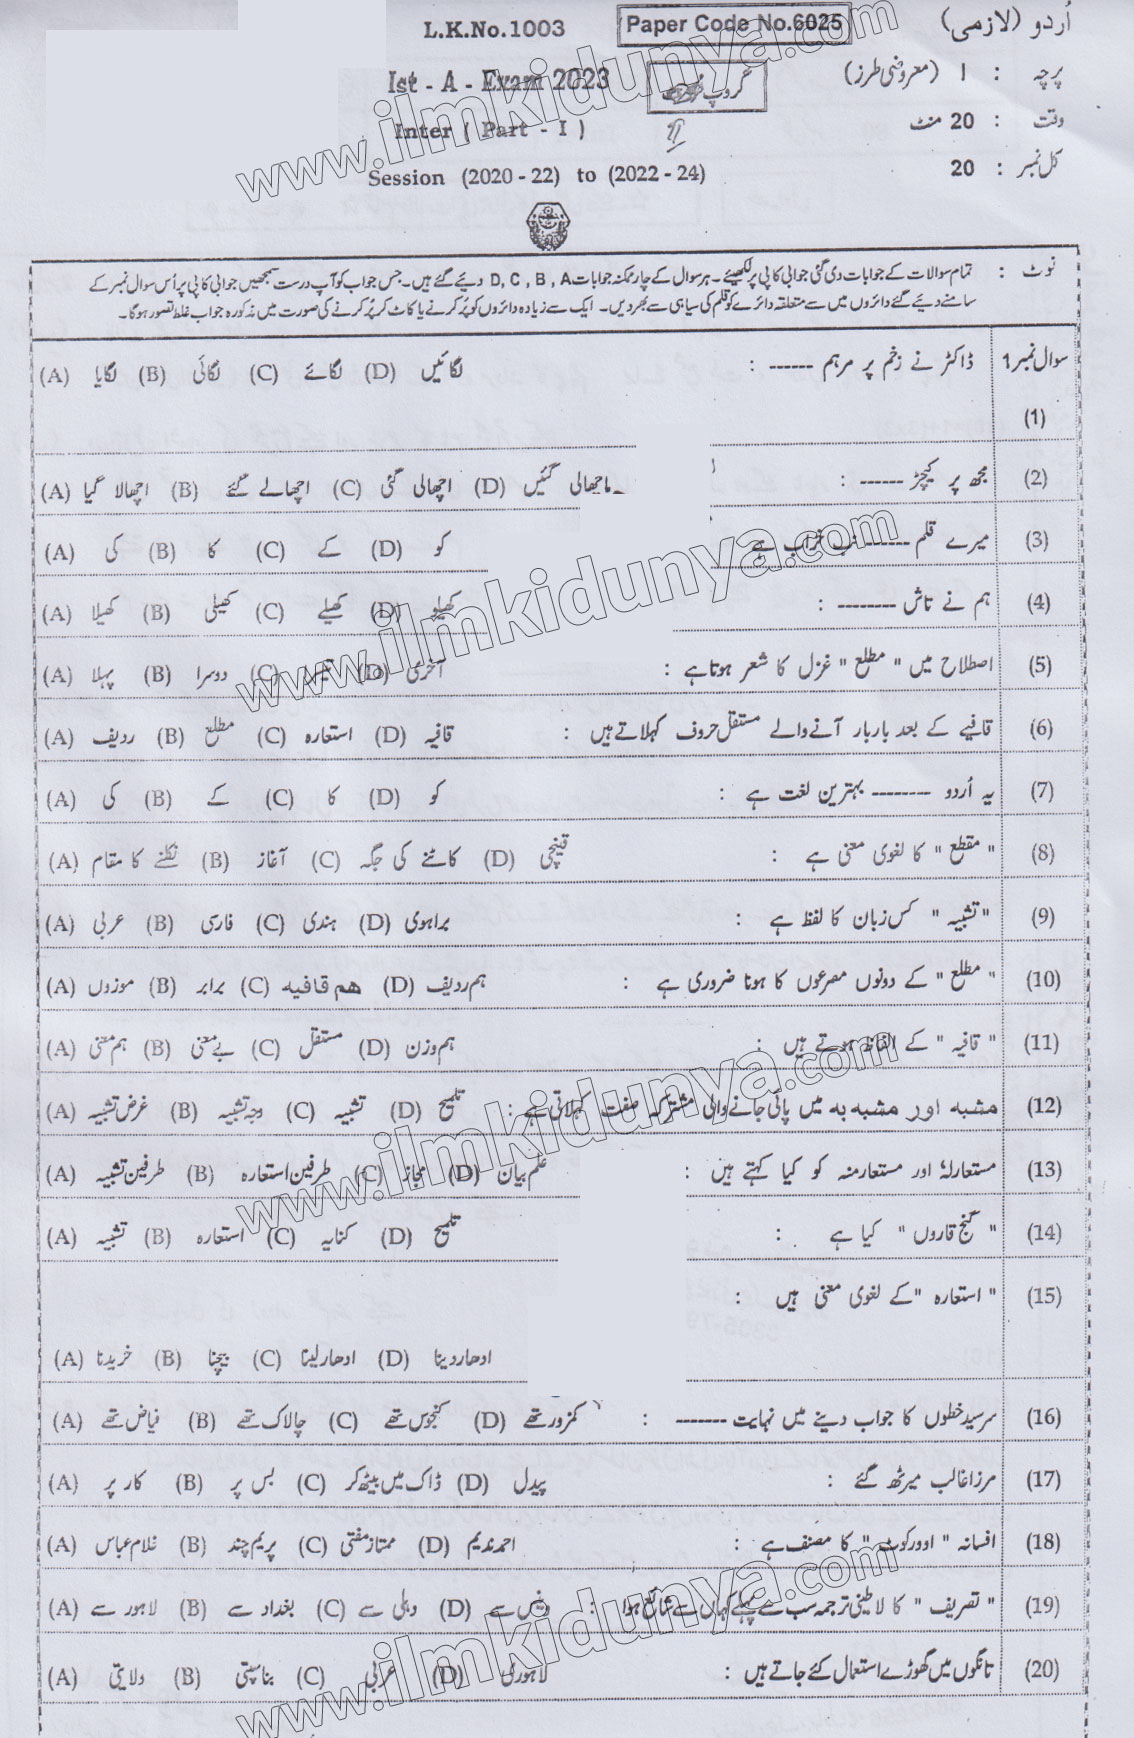 اُردو (لازمی)
Paper Code No.6025
L.K.No.1003
پرچہ : I (معروضی طرز)
گروپ
Ist - A - Exam 2023
وقت : 20 منٹ
Inter ( Part - I )
کل نمبر : 20
Session (2020 - 22) to (2022 - 24)
نوٹ : تمام سوالات کے جوابات دی گئی جوابی کاپی پر لکھیئے۔ ہر سوال کے چار ممکنہ جوابات D, C , B , A دیئے گئے ہیں۔ جس جواب کو آپ درست سمجھیں جوابی کاپی پر اُس سوال نمبر کے
سامنے دیئے گئے دائروں میں سے متعلقہ دائرے کو قلم کی سیاہی سے بھر دیں۔ ایک سے زیادہ دائروں کو پُر کرنے یا کاٹ کر پُر کرنے کی صورت میں مذکورہ جواب غلط تصور ہوگا۔
سوال نمبر 1 ڈاکٹر نے زخم پر مرہم ------ : (A) لگایا (B) لگائی (C) لگائے (D) لگائیں
(1)
(2) مجھ پر کیچڑ ------ : (A) اچھالا گیا (B) اچھالے گئے (C) اچھالی گئی (D) اچھالی گئیں
(3) میرے قلم ------ نب خراب ہے (A) کی (B) کا (C) کے (D) کو
(4) ہم نے تاش -------- : (A) کھیلا (B) کھیلی (C) کھیلے (D) کھیلو
(5) اصطلاح میں " مطلع " غزل کا شعر ہوتا ہے : (A) پہلا (B) دوسرا (C) تیسرا (D) آخری
(6) قافیے کے بعد بار بار آنے والے مستقل حروف کہلاتے ہیں : (A) ردیف (B) مطلع (C) استعارہ (D) قافیہ
(7) یہ اُردو -------- بہترین لغت ہے : (A) کی (B) کے (C) کا (D) کو
(8) " مقطع " کا لغوی معنی ہے : (A) نکلنے کا مقام (B) آغاز (C) کاٹنے کی جگہ (D) قینچی
(9) " تشبیہ " کس زبان کا لفظ ہے : (A) عربی (B) فارسی (C) ہندی (D) براہوی
(10) " مطلع " کے دونوں مصرعوں کا ہونا ضروری ہے : (A) موزوں (B) برابر (C) ہم قافیہ (D) ہم ردیف
(11) " قافیہ " کے الفاظ ہوتے ہیں : (A) ہم معنی (B) بے معنی (C) مستقل (D) ہم وزن
(12) مشبہ اور مشبہ بہ میں پائی جانے والی مشترکہ صفت کہلاتی ہے : (A) غرض تشبیہ (B) وجہ تشبیہ (C) تشبیہ (D) تلمیح
(13) مستعارلہٗ اور مستعارمنہ کو کیا کہتے ہیں : (A) طرفین تشبیہ (B) طرفین استعارہ (C) مجاز (D) علم بیان
(14) " گنج قاروں " کیا ہے : (A) تشبیہ (B) استعارہ (C) کنایہ (D) تلمیح
(15) " استعارہ " کے لغوی معنی ہیں :
(A) خریدنا (B) بیچنا (C) ادھار لینا (D) ادھار دینا
(16) سرسید خطوں کا جواب دینے میں نہایت ------- : (A) فیاض تھے (B) چالاک تھے (C) کنجوس تھے (D) کمزور تھے
(17) مرزا غالب میرٹھ گئے : (A) کار پر (B) بس پر (C) ڈاک میں بیٹھ کر (D) پیدل
(18) افسانہ " اوورکوٹ " کا مصنف ہے : (A) غلام عباس (B) پریم چند (C) ممتاز مفتی (D) احمد ندیم
(19) " تصریف " کا لاطینی ترجمہ سب سے پہلے کہاں سے شائع ہوا : (A) لاہور سے (B) بغداد سے (C) دہلی سے (D) وینس سے
(20) تانگوں میں گھوڑے استعمال کئے جاتے ہیں : (A) ولایتی (B) بناسپتی (C) عربی (D) لاہوری
www.ilmkidunya.com
www.ilmkidunya.com
www.ilmkidunya.com
www.ilmkidunya.com